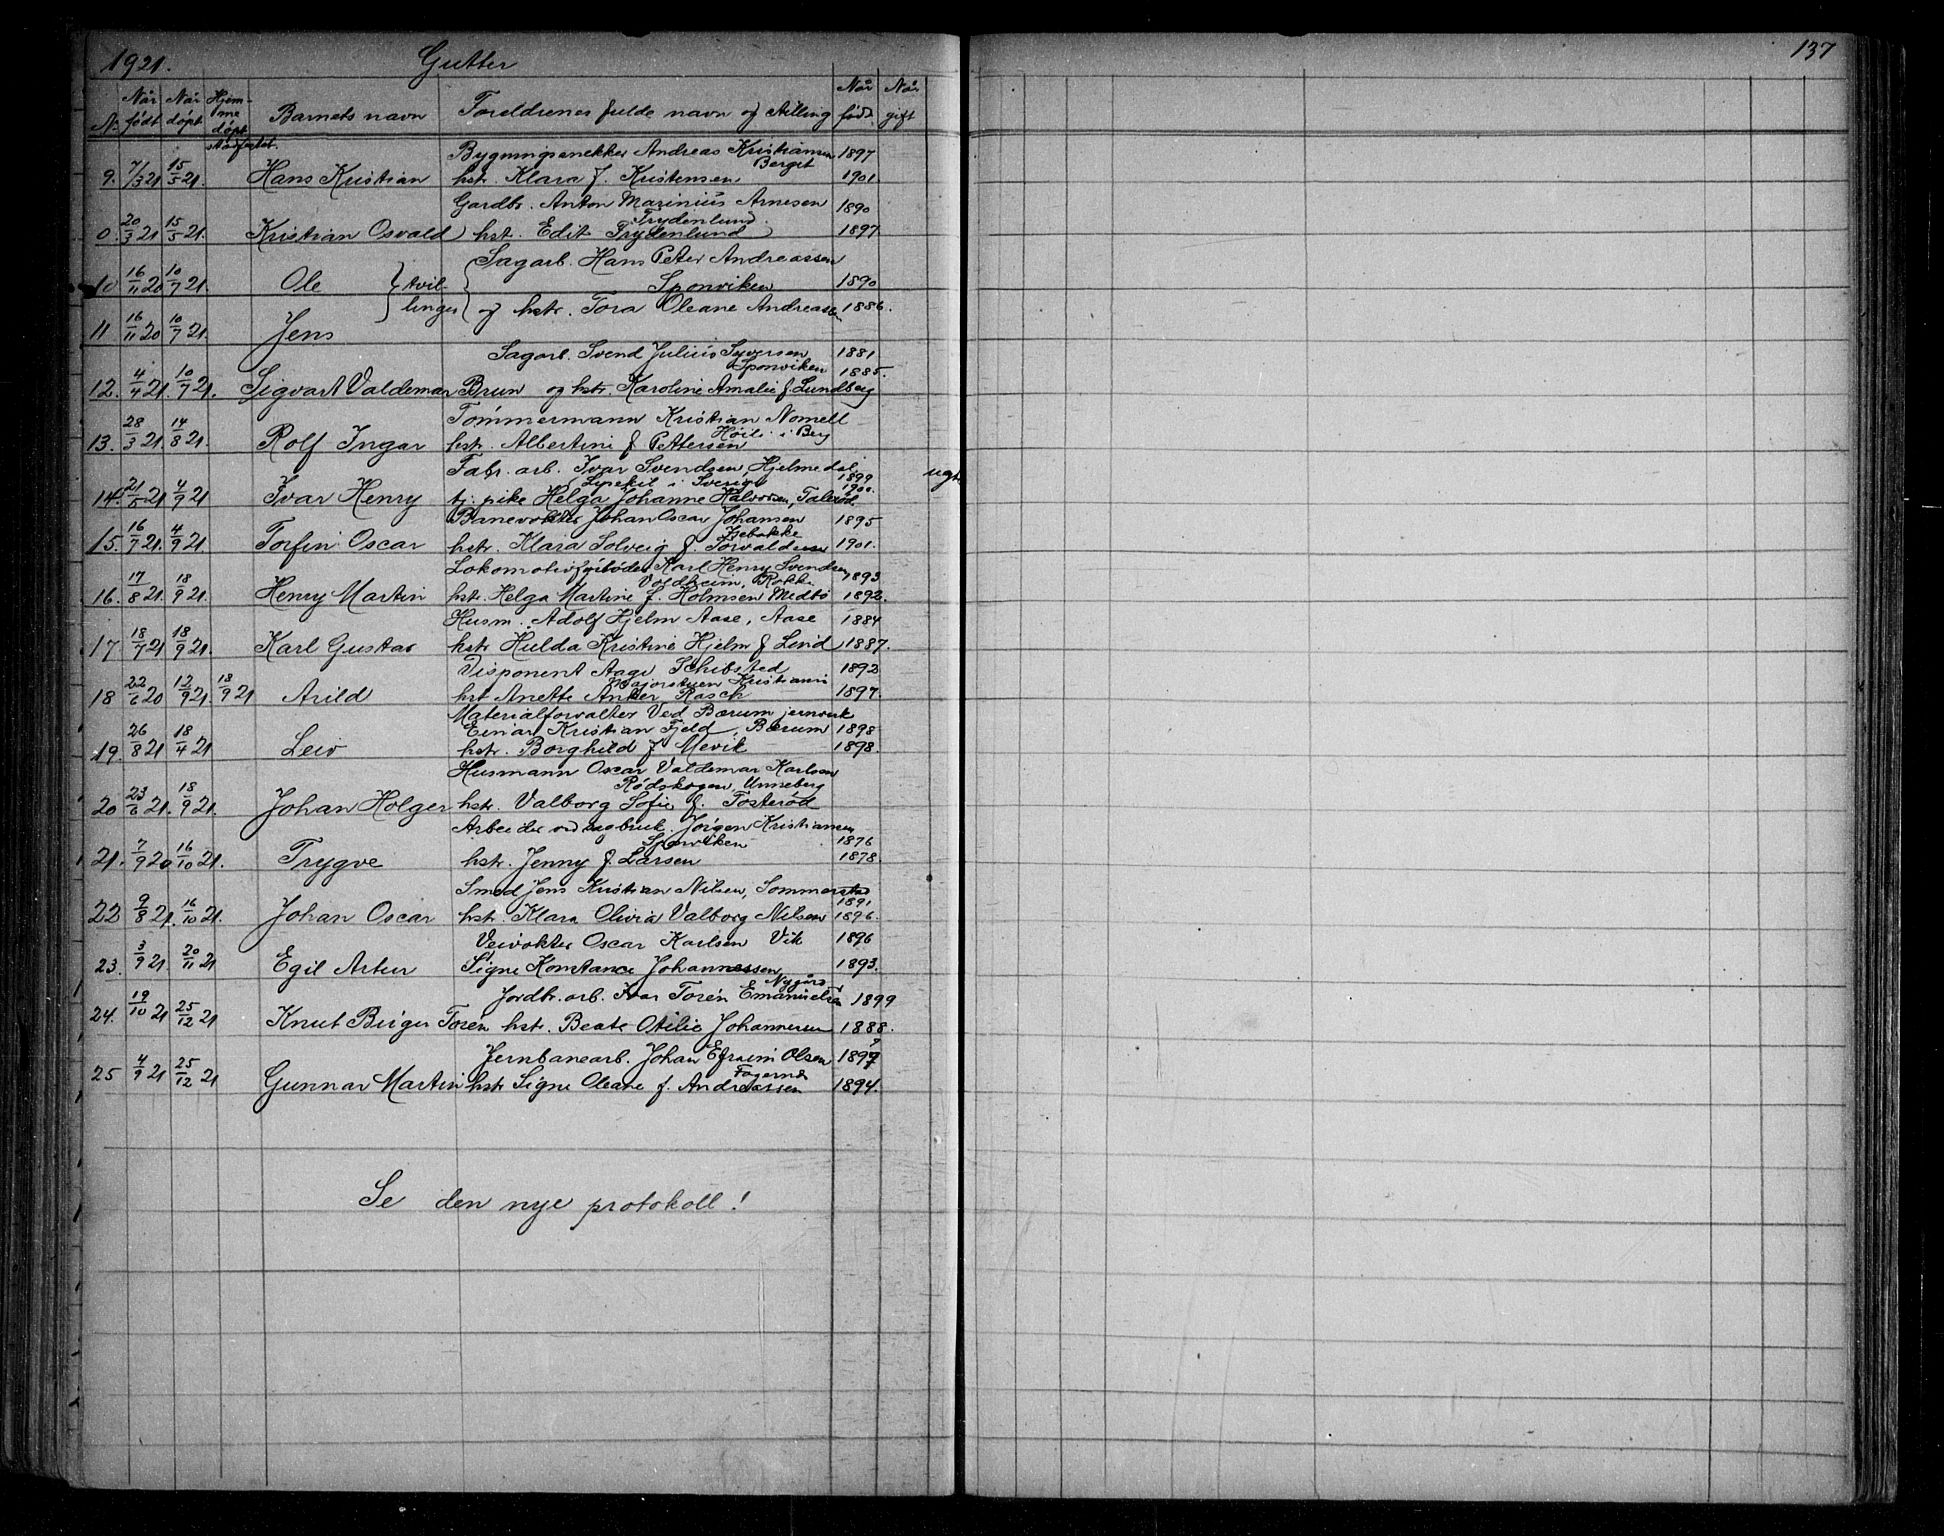 1921. Gutter 137
Nr. Når født Når døpt Hjemmedøpt stadfestet. Barnets navn Foreldrenes fulde navn og stilling Når født Når gift
Bygningssnekker Andreas Kristiansen 1897
Berget
9. 7/3 21 15/5 21. Hans Kristian hstr. Klara f. Kristensen. 1901.
Gardbr. Anton Marinius Arnesen 1890
Trydenlund.
0. 20/3 21 15/5 21. Kristian Osvald hst. Edit Trydenlund 1897
Sagarb. Hans Peter Andreassen
10 16/11 20 10/7 21. Ole } tvil- { Sponviken 1890
linger og hstr. Tora Oleane Andreasen 1886.
11 16/11 20 10/7 21. Jens
Sagarb. Svend Julius Syversen 1881
Sponviken 1885.
12. 4/4 21. 10/7 21. Sigvart Valdemar Brun og hstr. Karoline Amalie f. Lundberg
Tømmermann Kristian Nomell
Høili i Berg
13. 28/3 21. 14/8 21. Rolf Ingar hstr. Albertine f Pettersen
Fabr. arb. Ivar Svendsen, Hjelmedal,
Lysekil i Sverige 1899 ugt.
1900.
14. 21/5 21 4/9 21 Ivar Henry tj. pike Helga Johanne Halvorsen,
Banevokter Johan Oscar Johansen 1895
15. 16/7 21. 4/9 21. Torfin Oscar hstr. Klara Solveig f. Torvaldsen 1901.
Lokomotivfyrbøder Karl Henry Svendsen 1893
Voldheim, Rokke
16. 17/8 21. 18/9 21. Henry Martin hstr. Helga Martine f. Holmsen, Medbø 1892.
Husm. Adolf Hjelm Aase, Aase 1884
17 18/7 21 18/9 21. Karl Gustav hstr Hulda Kristine Hjelm f Lind 1887.
Disponent Aage Schibsted 1892
Majorstuen Kristiania
18 22/6 20 12/9 21. 18/9 21 Arild hst Anette Anker Rasch 1897.
Materialforvalter Ved Bærum jernverk
Einar Kristian Fjeld, Bærum 1898
19. 26/8 21 18/4 21 Leiv hstr. Borghild f Mevik 1898.
Husmann Oscar Valdemar Karlsen
Rødskogen, Unneberg
20 23/6 21. 18/9 21. Johan Holger hstr. Valborg Sofie f. Tosterød
Arbeider ved sagbruk. Jørgen Kristiansen
Sponviken 1876
21. 7/9 20 16/10 21. Trygve hstr. Jenny f Larsen 1878.
Smed Jens Kristian Nilsen, Sommerstad
1891
22 9/8 21. 16/10 21. Johan Oscar hstr. Klara Olivia Valborg Nilsen 1896.
Veivokter Oscar Karlsen Vik 1896
23. 3/9 21. 20/11 21 Egil Artur Signe Konstance Johannessen 1893.
Nygård
Jordbr. arb. Ivar Torén Emanuelsen 1899
24. 19/10 21 25/12 21 Knut Birger Torén hstr. Beate Otilie Johannesen 1888.
Jernbanearb. Johan Efraim Olsen 1897
Fagernes
25 4/9 21 25/12 21 Gunnar Martin hstr Signe Oleane f. Andreassen 1894.
Se den nye protokoll!